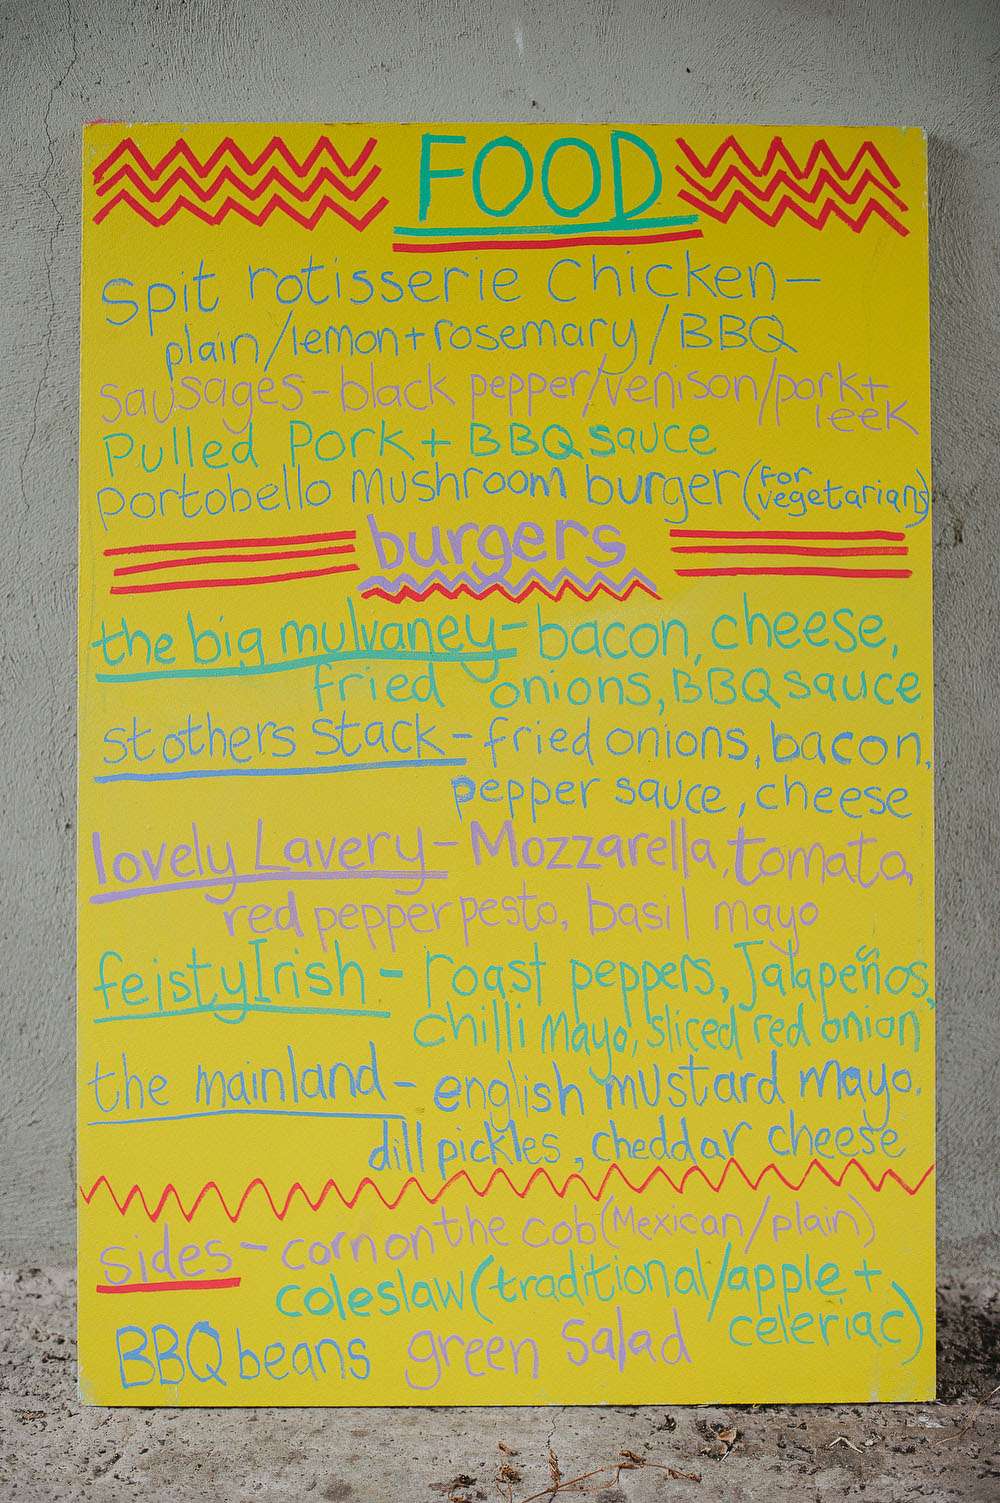 FOOD
Spit rotisserie Chicken -
plain/lemon + rosemary / BBQ
Sausages - black pepper/venison/pork +
leek
Pulled Pork + BBQ sauce
Portobello Mushroom burger (for
vegetarians)
burgers
the big mulvaney - bacon, cheese,
fried onions, BBQ sauce
stothers stack - fried onions, bacon,
pepper sauce, cheese
lovely Lavery - Mozzarella, tomato,
red pepper pesto, basil mayo
feisty Irish - roast peppers, Jalapeños,
chilli mayo, sliced red onion
the mainland - english mustard mayo.
dill pickles, cheddar cheese
sides - corn on the cob (Mexican/plain)
coleslaw (traditional/apple +
celeriac)
BBQ beans green salad